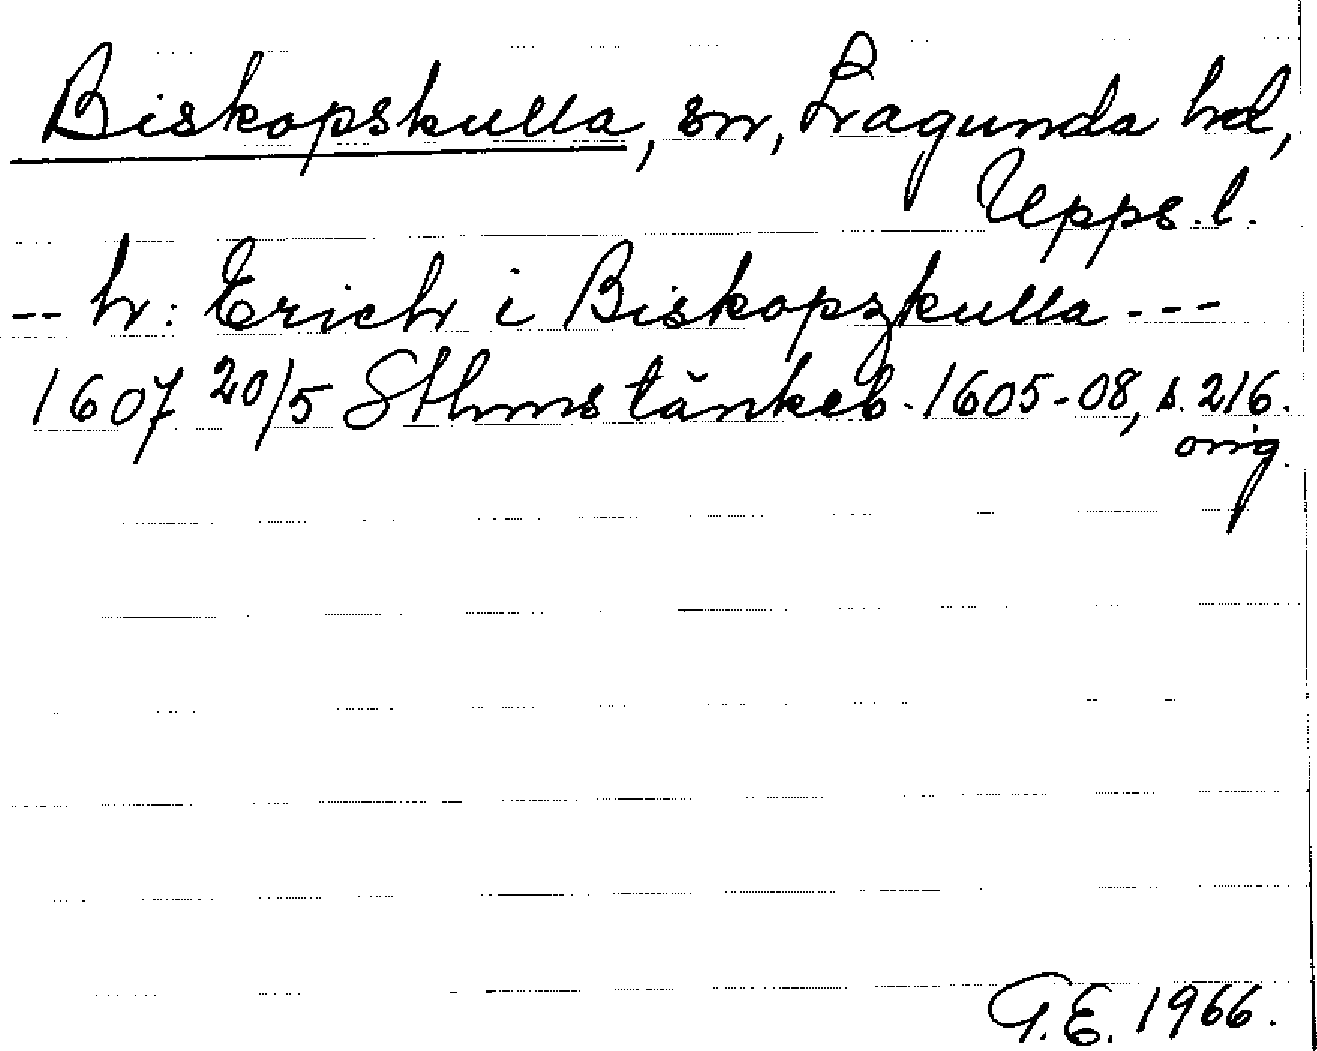 Biskopskulla, sn, Lagunda hd,
Upps. l.
-- h: Erich i Biskopzkulla ---
1607 20/5 Sthms tänkeb. 1605-08, s. 216.
orig.
G.E. 1966.